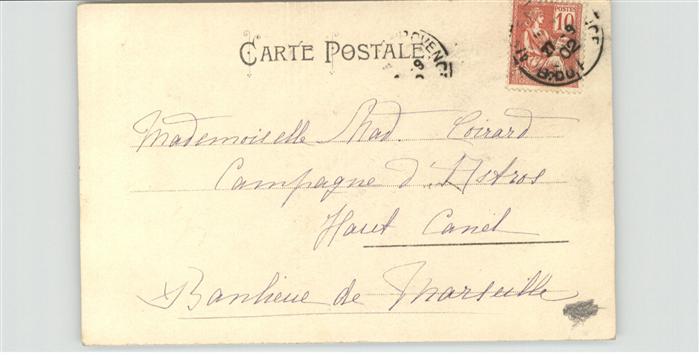 CARTE POSTALE
POSTES
10
PROVENCE
02
B. DU R.
Mademoiselle Mad. Coirard
Campagne d'Astros
Haut Canet
Banlieue de Marseille